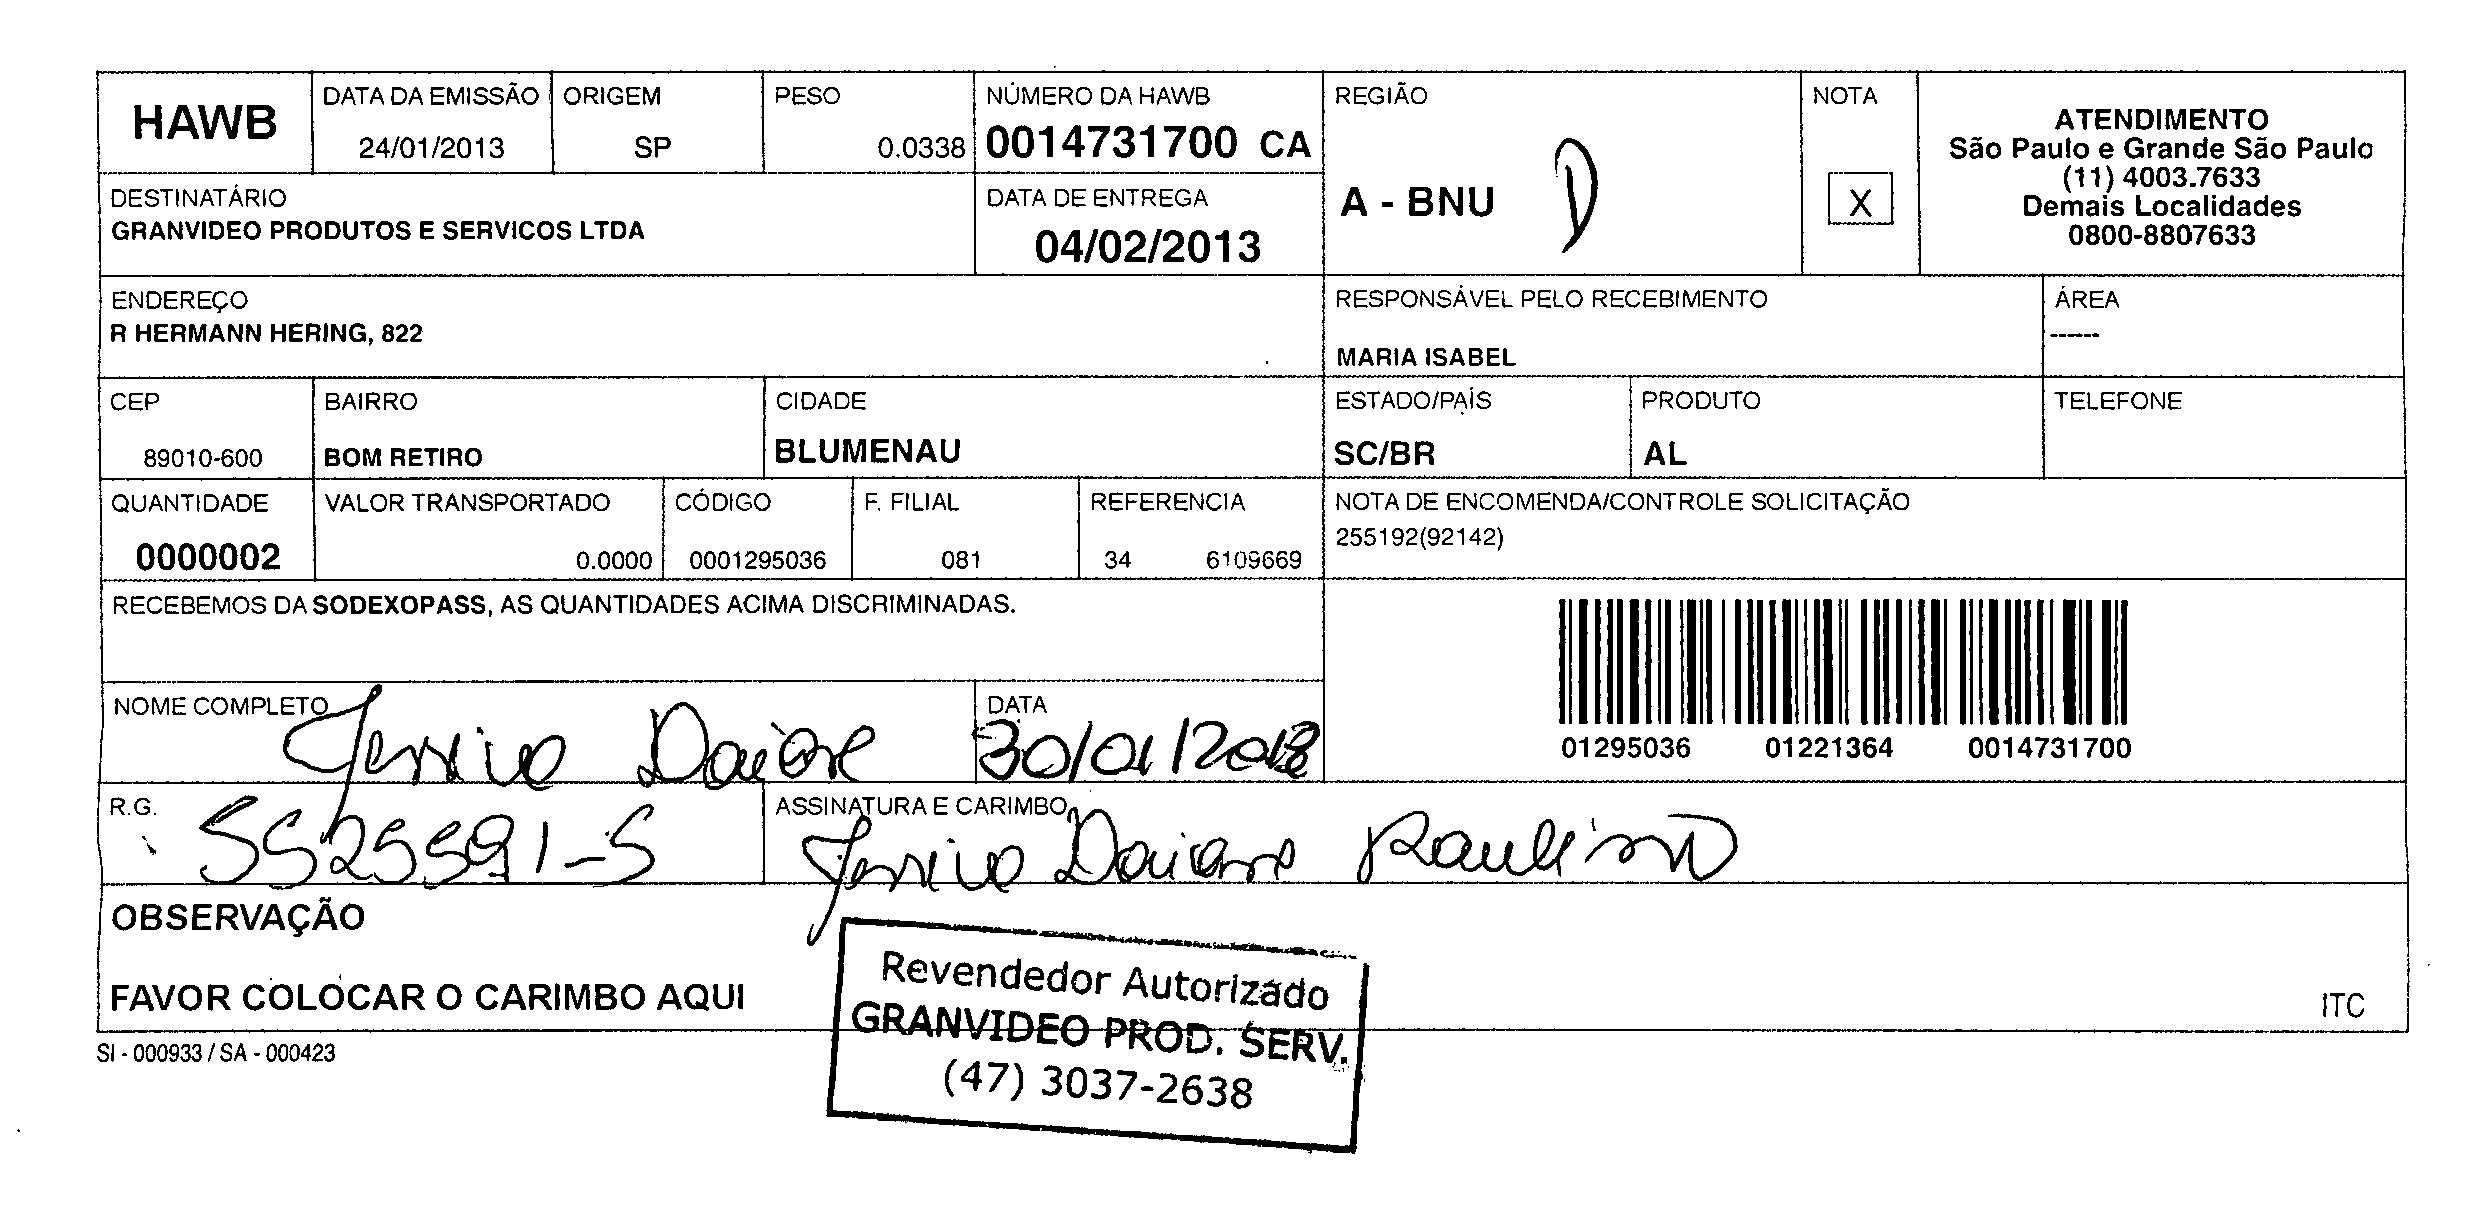 HAWB
DATA DA EMISSÃO
24/01/2013
ORIGEM
SP
PESO
0.0338
NÚMERO DA HAWB
0014731700 CA
REGIÃO
A - BNU
D
NOTA
X
ATENDIMENTO
São Paulo e Grande São Paulo
(11) 4003.7633
Demais Localidades
0800-8807633
DESTINATÁRIO
GRANVIDEO PRODUTOS E SERVICOS LTDA
DATA DE ENTREGA
04/02/2013
ENDEREÇO
R HERMANN HERING, 822
RESPONSÁVEL PELO RECEBIMENTO
MARIA ISABEL
ÁREA
------
CEP
89010-600
BAIRRO
BOM RETIRO
CIDADE
BLUMENAU
ESTADO/PAÍS
SC/BR
PRODUTO
AL
TELEFONE
QUANTIDADE
0000002
VALOR TRANSPORTADO
0.0000
CÓDIGO
0001295036
F. FILIAL
081
REFERENCIA
34 6109669
NOTA DE ENCOMENDA/CONTROLE SOLICITAÇÃO
255192(92142)
RECEBEMOS DA SODEXOPASS, AS QUANTIDADES ACIMA DISCRIMINADAS.
01295036 01221364 0014731700
NOME COMPLETO
Jessica Daiane
DATA
30/01/2013
R.G.
5525591-5
ASSINATURA E CARIMBO
Jessica Daiane Paulino
OBSERVAÇÃO
FAVOR COLOCAR O CARIMBO AQUI
Revendedor Autorizado
GRANVIDEO PROD. SERV.
(47) 3037-2638
ITC
SI - 000933 / SA - 000423